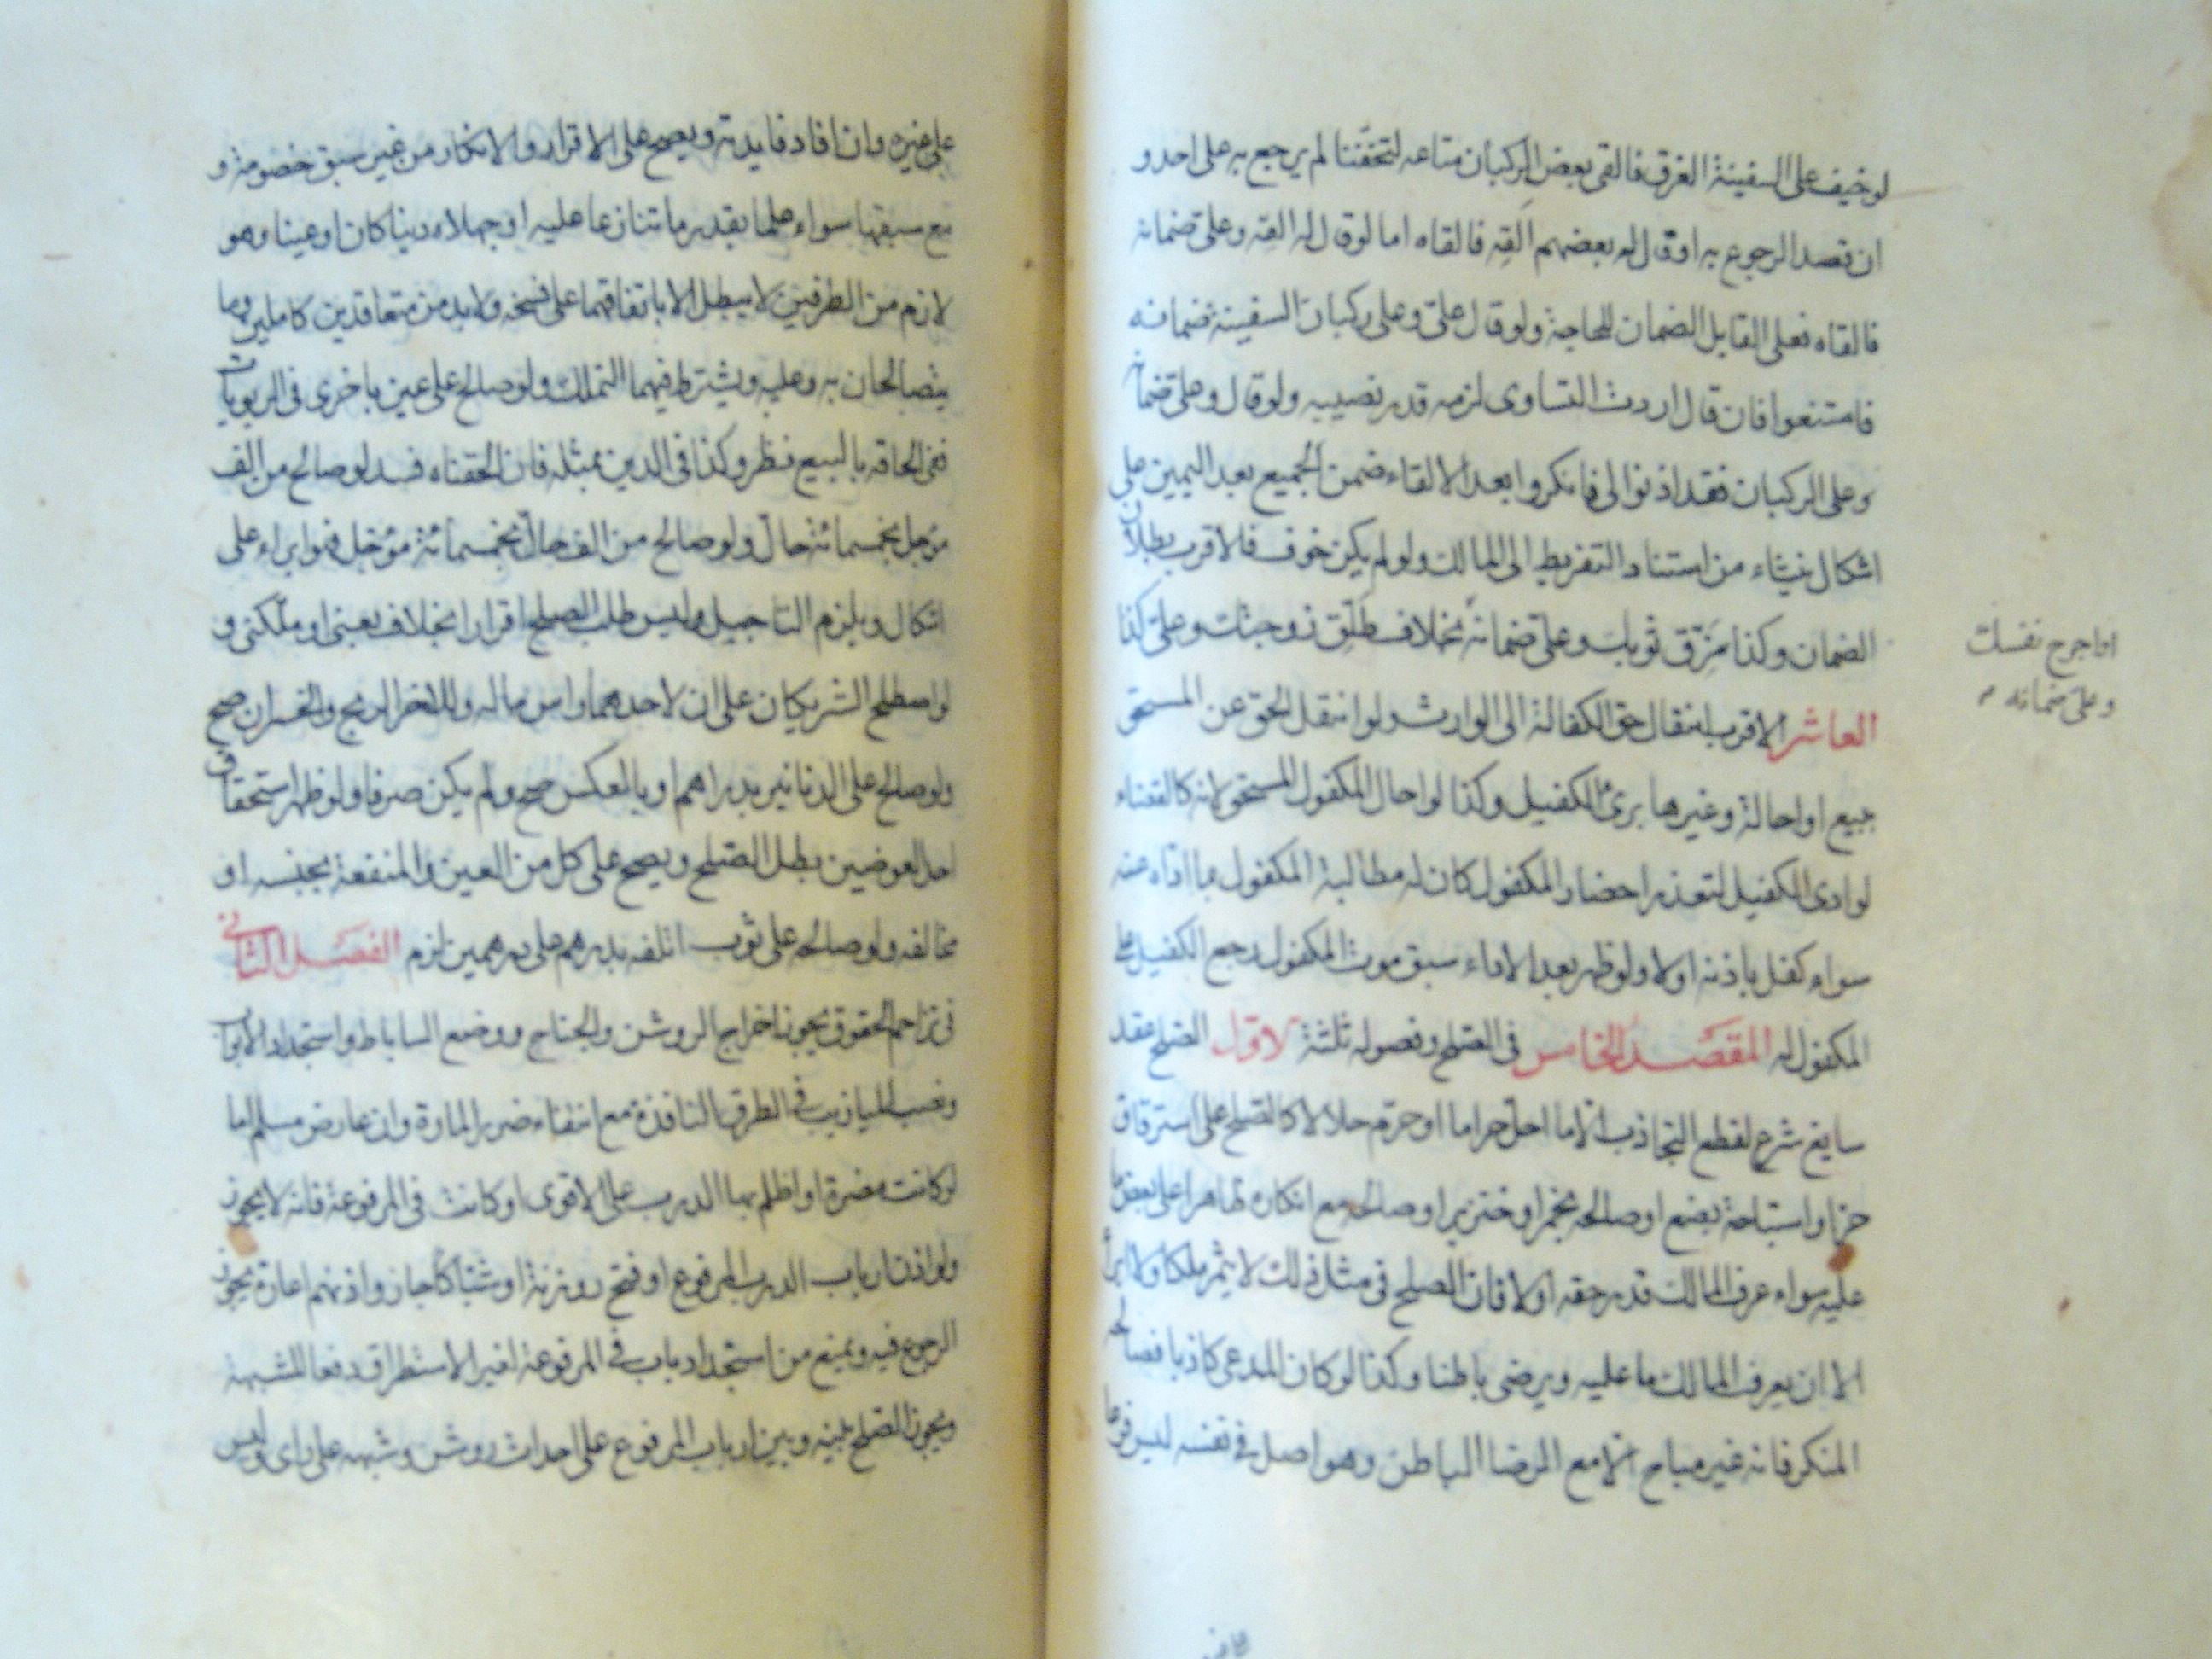 لو خيف على السفينة الغرق فالقى بعض الركبان متاعه لتخففنا لم يرجع به على احد و
ان قصد الرجوع به او قال له بعضهم القه فالقاه اما لو قال له القه وعلى ضمانه
فالقاه فعلى القايل الضمان للحاجة ولو قال علىّ وعلى ركبان السفينة ضمانه
فامتنعوا فان قال اردت التساوى لزمه قدر نصيبه ولو قال وعلى ضمانه
وعلى الركبان فقد اذنوا لى فانكروا بعد الالقاء ضمن الجميع بعد اليمين على
اشكال ينشاء من استناد التفريط الى المالك ولو لم يكن خوف فالاقرب بطلان
الضمان وكذا مَزّق ثوبك وعلىّ ضمانه بخلاف طلّق زوجتك وعلىّ كذا
او اجرح نفسك
وعلىّ ضمانه
العاشر الاقرب انتقال حق الكفالة الى الوارث ولو انتقل الحق عن المستحق
ببيع او احالة وغيرها برئ الكفيل وكذا لو احال المكفول المستحق لانه كالقضاء
لو ادى الكفيل لتعذر احضار المكفول كان له مطالبة المكفول بما اداه عنه
سواء كفل باذنه او لا ولو ظهر بعد الاداء سبق موت المكفول رجع الكفيل على
المكفول له المقصد الخامس فى الصلح وفصوله ثلثة الاوّل الصلح عقد
سايغ شرع لقطع التجاذب الا ما احل حراما او حرّم حلالا كالصلح على استرقاق
حر او استباحة بضع او صالحه بخمر او خنزير او صالحه مع انكاره ظاهرا على بعض ما
عليه سواء عرف المالك قدر حقه او لا فان الصلح فى مثل ذلك لا يثمر ملكا ولا ابرأ
الا ان يعرف المالك ما عليه ويرضى باطنا وكذا لو كان المدعى كاذبا فصالحه
المنكر فانه غير مباح الا مع الرضا الباطن وهو اصل فى نفسه ليس فرعا
على غيره وان افاد فايدته ويصح على الاقرار والانكار من غير سبق خصومة و
مع سبقها سواء علما بقدر ما تنازعا عليه او جهلاه دينا كان او عينا وهو
لازم من الطرفين لا يبطل الا باتفاقهما على فسخه ولا بد من متعاقدين كاملين وما
يتصالحان به وعليه ويشترط فيهما التملك ولو صالح على عين باخرى فى الربويات
ففى الحاقه بالبيع نظر وكذا فى الدين بمثله فان الحقناه فسد لو صالح من الف
مؤجل بخمسمائة حالّ ولو صالح من الف حالّ بخمسمائة مؤجل فهو ابراء على
اشكال ويلزم التاجيل وليس طلب الصلح اقرارا بخلاف بعنى او ملّكنى و
لو اصطلح الشريكان على ان لاحدهما راس ماله وللاخر الربح والخسران صح
ولو صالح على الدنانير بدراهم او بالعكس صح ولم يكن صرفا ولو ظهر استحقاق
احد العوضين بطل الصلح ويصح على كل من العين والمنفعة بجنسه او
مخالفه ولو صالحه على ثوب اتلفه بدرهم على درهمين لزم الفصل الثانى
فى تزاحم الحقوق يجوز اخراج الروشن والجناح ووضع الساباط واستجداد الابواب
ونصب الميازيب فى الطرق النافذة مع انتفاء ضرر المارة وان عارض مسلم اما
لو كانت مضرة او اظلم بها الدرب على الاقوى او كانت فى المرفوعة فانه لا يجوز
ولو اذن ارباب الدرب المرفوع او فتح روزنة او شباكا جاز واذنهم اعارة يجوز
الرجوع فيه ويمنع من استجداد باب فى المرفوعة لغير الاستطراق دفعا للشبهة
ويجوز الصلح بينه وبين ارباب المرفوع على احداث روشن وشبهه على راى وليس